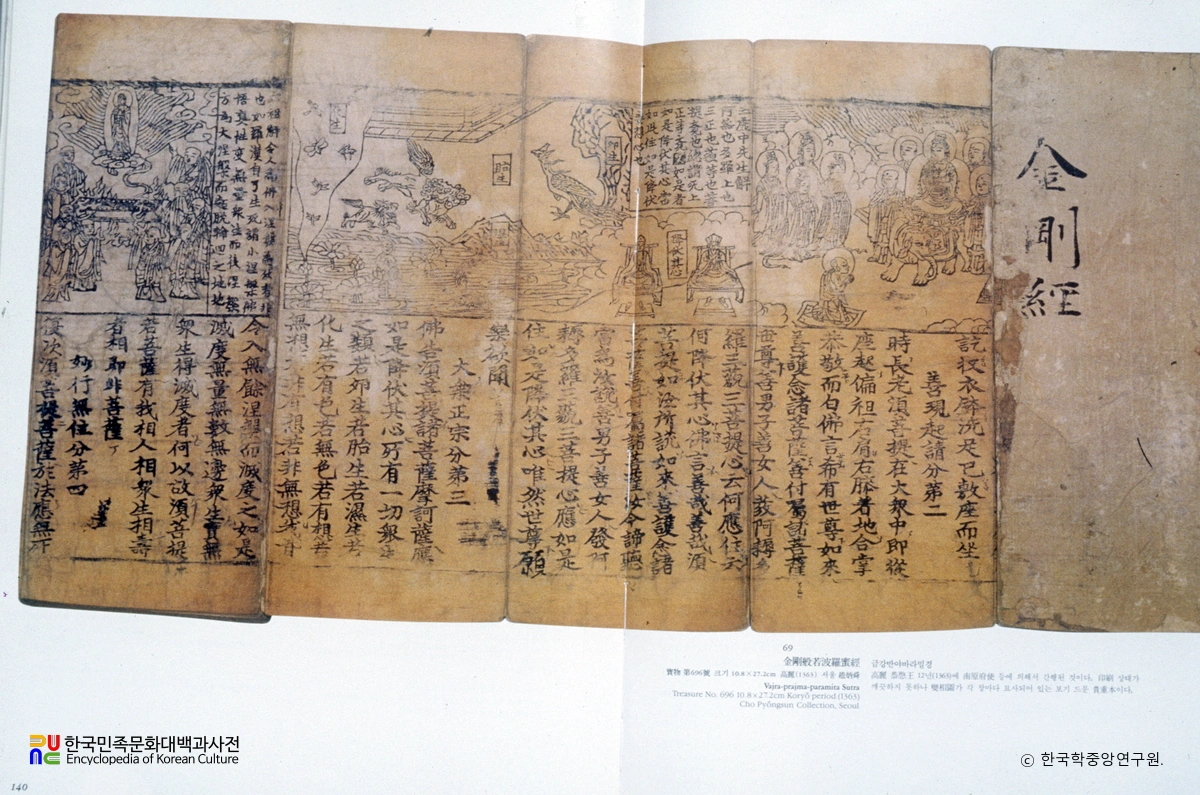 金剛經
訖收衣鉢洗足已敷座而坐
善現起請分第二
時長老湏菩提在大衆中即從
座起偏袒右肩右膝着地合掌
恭敬而白佛言希有世尊如來
善護念諸菩薩善付屬諸菩薩
世尊善男子善女人發阿耨多
羅三藐三菩提心云何應住云
何降伏其心佛言善哉善哉湏
菩提如汝所說如來善護念諸
菩薩善付屬諸菩薩汝今諦聽
當為汝說善男子善女人發阿
耨多羅三藐三菩提心應如是
住如是降伏其心唯然世尊願
樂欲聞
大乗正宗分第三
佛告湏菩提諸菩薩摩訶薩應
如是降伏其心所有一切衆生
之類若卵生若胎生若濕生若
化生若有色若無色若有想若
無想若非有想若非無想我皆
令入無餘涅槃而滅度之如是
滅度無量無數無邊衆生實無
衆生得滅度者何以故湏菩提
若菩薩有我相人相衆生相壽
者相即非菩薩
妙行無住分第四
復次湏菩提菩薩於法應無所
降伏其心
卵生
胎生
69
金剛般若波羅蜜經 금강반야바라밀경
寶物 第696號 크기 10.8×27.2cm 高麗(1363) 서울 趙炳舜
Vajra-prajma-paramita Surra
Treasure No. 696 10.8×27.2cm Koryŏ period(1363)
Cho Pyŏngsun Collection, Seoul
高麗 恭愍王 12년(1363)에 南原府使 등에 의해서 간행된 것이다. 印刷 상태가
깨끗하지 못하나 變相圖가 각 장마다 묘사되어 있는 보기 드문 貴重本이다.
한국민족문화대백과사전
Encyclopedia of Korean Culture
ⓒ 한국학중앙연구원.
140